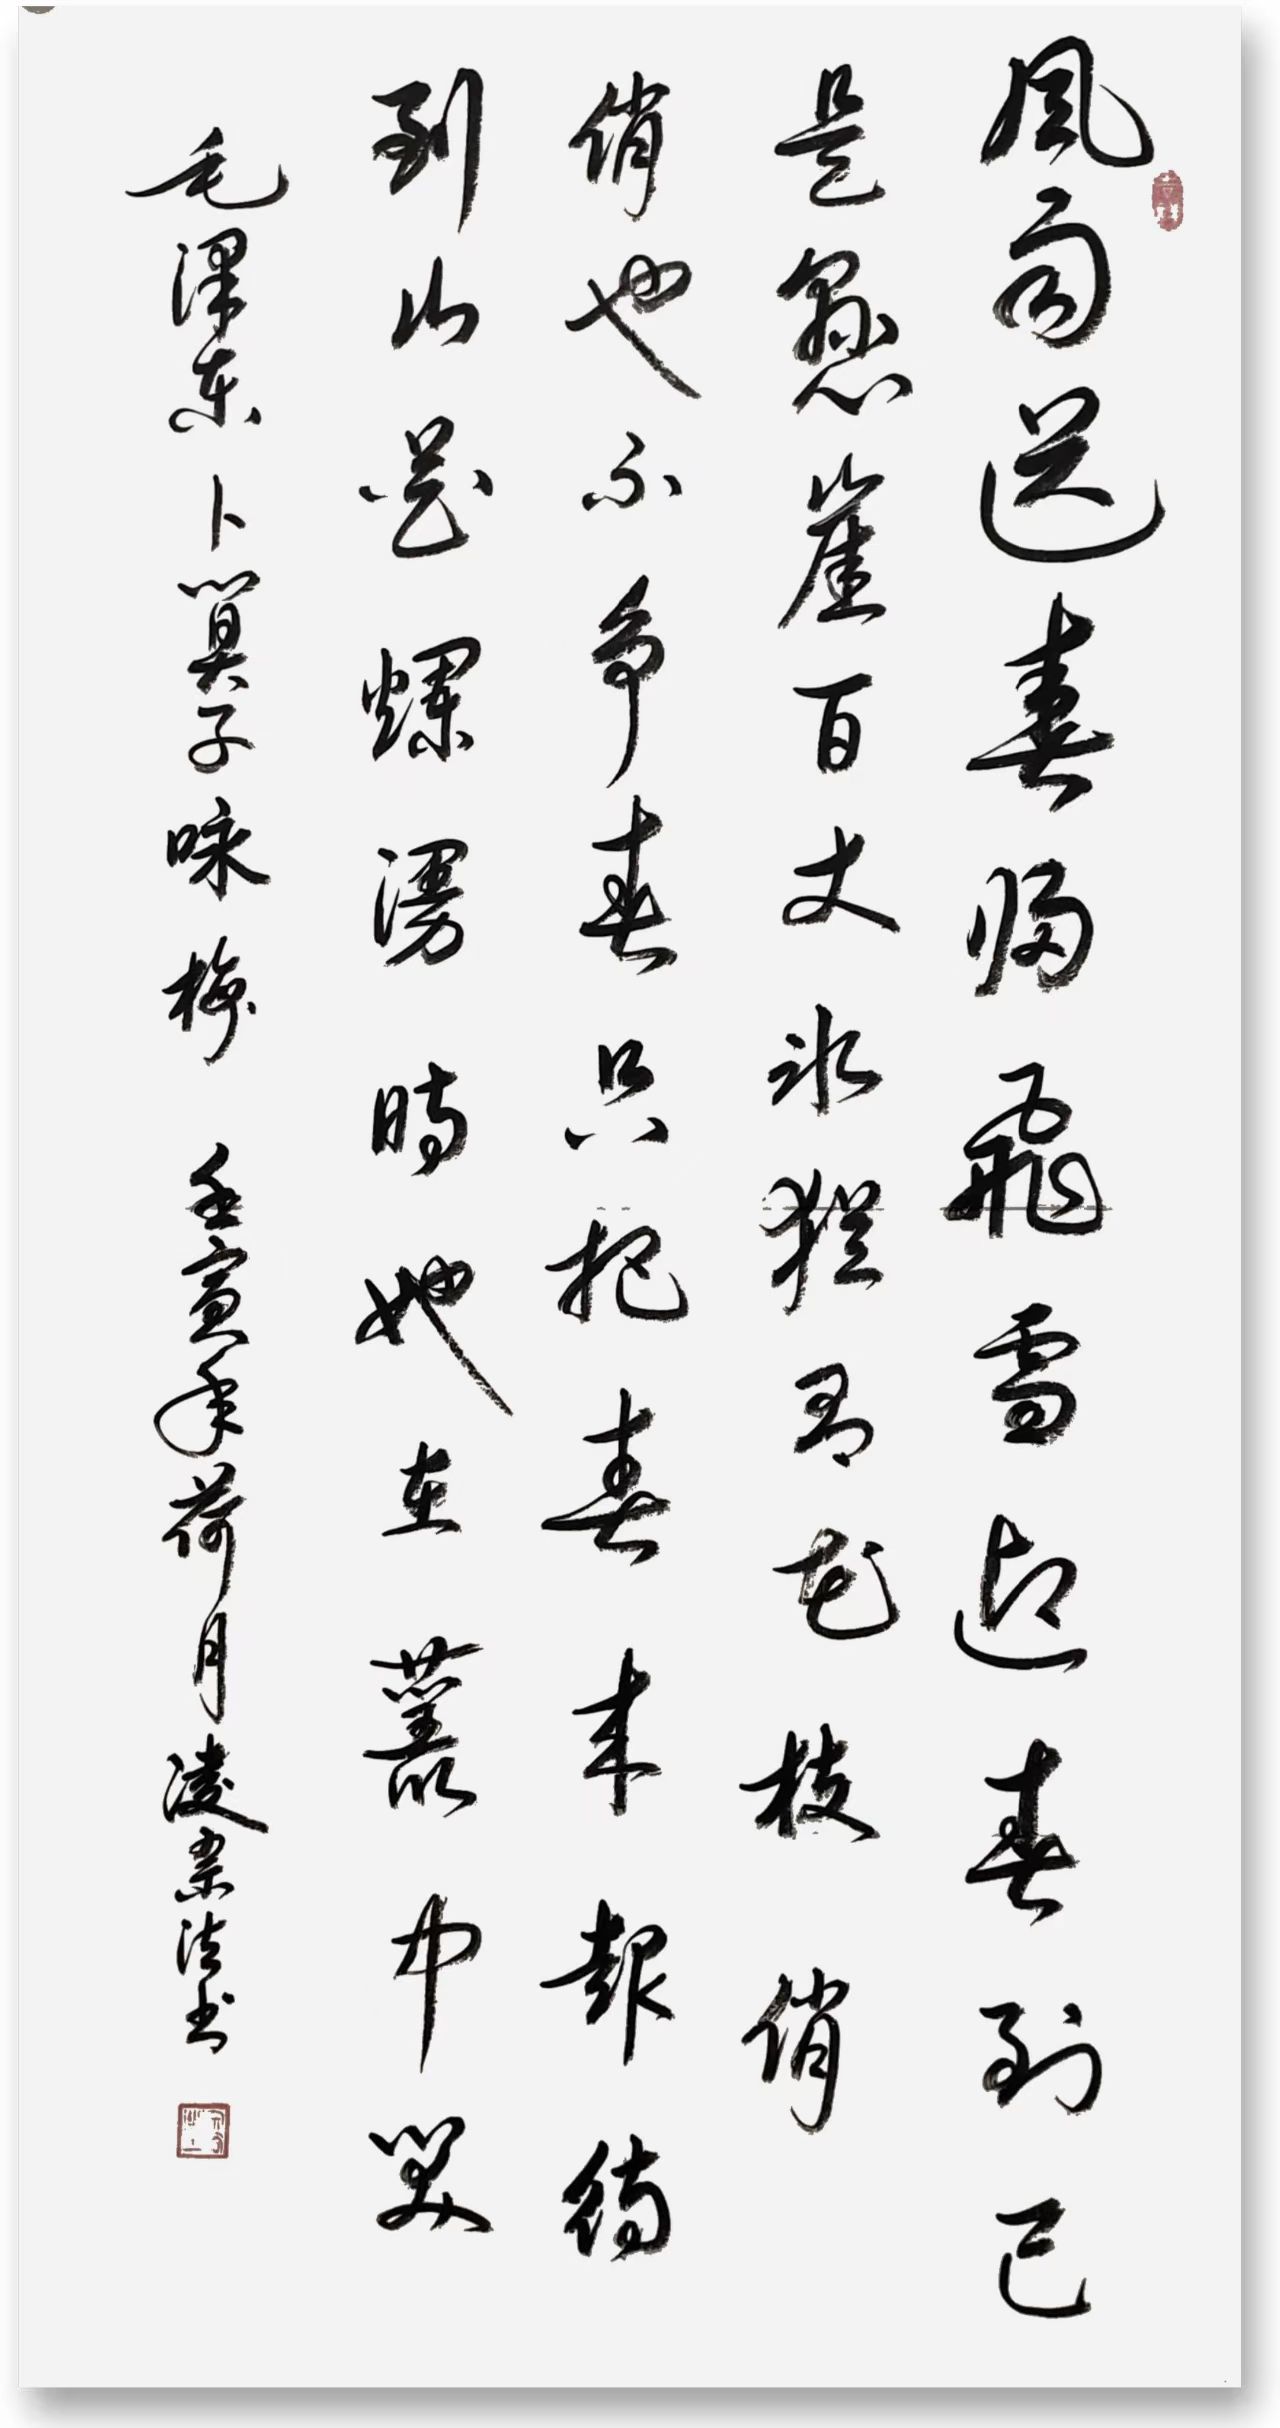 風雨送春归飛雪迎春到已
是懸崖百丈冰猶有花枝俏
俏也不争春只把春来報待
到山花爛漫時她在叢中笑
毛澤東卜算子咏梅 壬寅年荷月凌法书